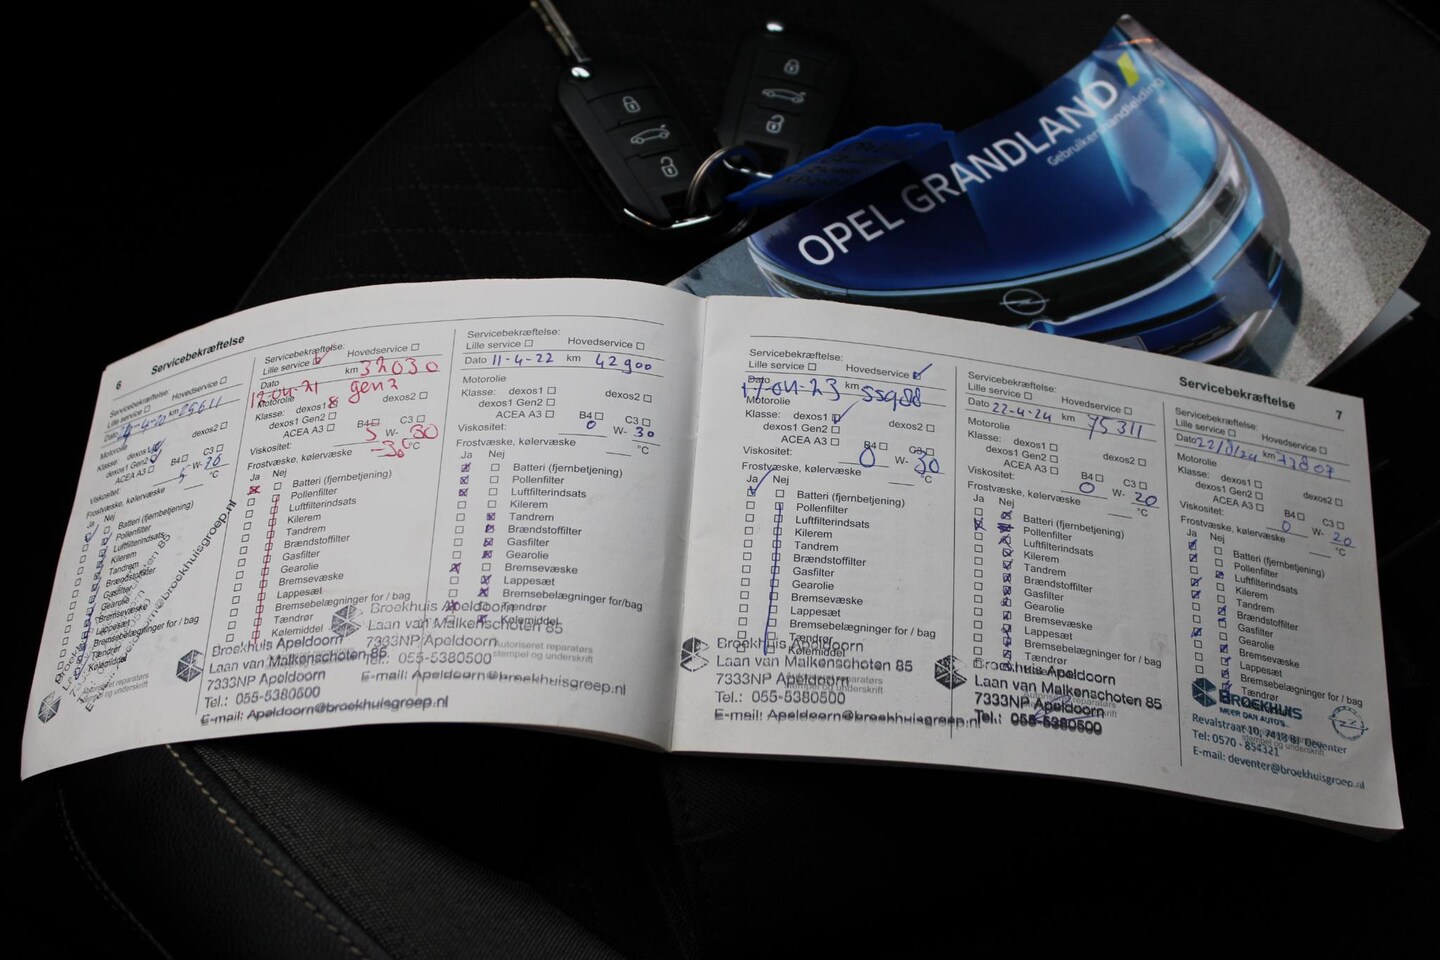 OPEL GRANDLAND
Gebruikershandleiding
6 Servicebekræftelse
Servicebekræftelse:
Lille service Hovedservice
km 25611
Motorolie
Klasse: dexos1 dexos2
dexos1 Gen2
ACEA A3 B4 C3
Viskositet: 5 W-
Frostvæske, kølervæske °C
Ja Nej
Batteri (fjernbetjening)
Pollenfilter
Luftfilterindsats
Kilerem
Tandrem
Brændstoffilter
Gasfilter
Gearolie
Bremsevæske
Lappesæt
Bremsebelægninger for / bag
Tændrør
Kølemiddel
Servicebekræftelse:
Lille service Hovedservice
Dato km 32030
gen2
Motorolie
Klasse: dexos1 dexos2
dexos1 Gen2
ACEA A3 B4 C3
Viskositet: 5 W- 30
Frostvæske, kølervæske °C
Ja Nej
Batteri (fjernbetjening)
Pollenfilter
Luftfilterindsats
Kilerem
Tandrem
Brændstoffilter
Gasfilter
Gearolie
Bremsevæske
Lappesæt
Bremsebelægninger for / bag
Tændrør
Kølemiddel
Broekhuis Apeldoorn
Laan van Malkenschoten 85
7333NP Apeldoorn
Tel.: 055-5380500
E-mail: Apeldoorn@broekhuisgroep.nl
Servicebekræftelse:
Lille service Hovedservice
Dato 11-4-22 km 42900
Motorolie
Klasse: dexos1 dexos2
dexos1 Gen2
ACEA A3 B4 C3
Viskositet: 0 W- 30
Frostvæske, kølervæske °C
Ja Nej
Batteri (fjernbetjening)
Pollenfilter
Luftfilterindsats
Kilerem
Tandrem
Brændstoffilter
Gasfilter
Gearolie
Bremsevæske
Lappesæt
Bremsebelægninger for/bag
Tændrør
Kølemiddel
Broekhuis Apeldoorn
Laan van Malkenschoten 85
7333NP Apeldoorn
Tel.: 055-5380500
E-mail: Apeldoorn@broekhuisgroep.nl
Autoriseret reparatørs
stempel og underskrift
Servicebekræftelse 7
Servicebekræftelse:
Lille service Hovedservice
Dato 17-04-23 km 55988
Motorolie
Klasse: dexos1 dexos2
dexos1 Gen2
ACEA A3 B4 C3
Viskositet: 0 W- 30
Frostvæske, kølervæske °C
Ja Nej
Batteri (fjernbetjening)
Pollenfilter
Luftfilterindsats
Kilerem
Tandrem
Brændstoffilter
Gasfilter
Gearolie
Bremsevæske
Lappesæt
Bremsebelægninger for / bag
Tændrør
Kølemiddel
Broekhuis Apeldoorn
Laan van Malkenschoten 85
7333NP Apeldoorn
Tel.: 055-5380500
E-mail: Apeldoorn@broekhuisgroep.nl
Servicebekræftelse:
Lille service Hovedservice
Dato 22-4-24 km 75311
Motorolie
Klasse: dexos1 dexos2
dexos1 Gen2
ACEA A3 B4 C3
Viskositet: 0 W- 20
Frostvæske, kølervæske °C
Ja Nej
Batteri (fjernbetjening)
Pollenfilter
Luftfilterindsats
Kilerem
Tandrem
Brændstoffilter
Gasfilter
Gearolie
Bremsevæske
Lappesæt
Bremsebelægninger for / bag
Tændrør
Broekhuis Apeldoorn
Laan van Malkenschoten 85
7333NP Apeldoorn
Tel.: 055-5380500
Servicebekræftelse:
Lille service Hovedservice
Dato 22/8/24 km
Motorolie
Klasse: dexos1 dexos2
dexos1 Gen2
ACEA A3 B4 C3
Viskositet: 0 W- 20
Frostvæske, kølervæske °C
Ja Nej
Batteri (fjernbetjening)
Pollenfilter
Luftfilterindsats
Kilerem
Tandrem
Brændstoffilter
Gasfilter
Gearolie
Bremsevæske
Lappesæt
Bremsebelægninger for / bag
Tændrør
BROEKHUIS
MEER DAN AUTO'S
Revalstraat 10, 7418 BJ Deventer
Tel: 0570 - 854321
E-mail: deventer@broekhuisgroep.nl